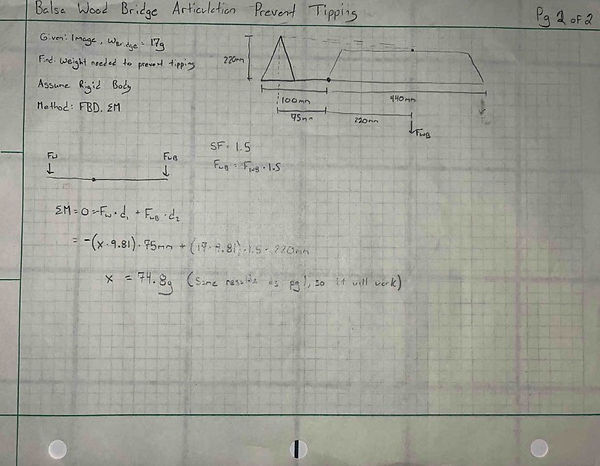 Balsa Wood Bridge Articulation Prevent Tipping
Pg 2 of 2
Given: Image, WBridge = 17g
Find: Weight needed to prevent tipping
Assume Rigid Body
Method: FBD, ΣM
220mm
100mm
440mm
75mm
220mm
FWB
FW
FWB
SF = 1.5
FWB = FWB · 1.5
ΣM = 0 = -FW · d1 + FWB · d2
= -(x · 9.81) · 75mm + (17 · 9.81) · 1.5 · 220mm
x = 74.8g (Same results as pg 1, so it will work)